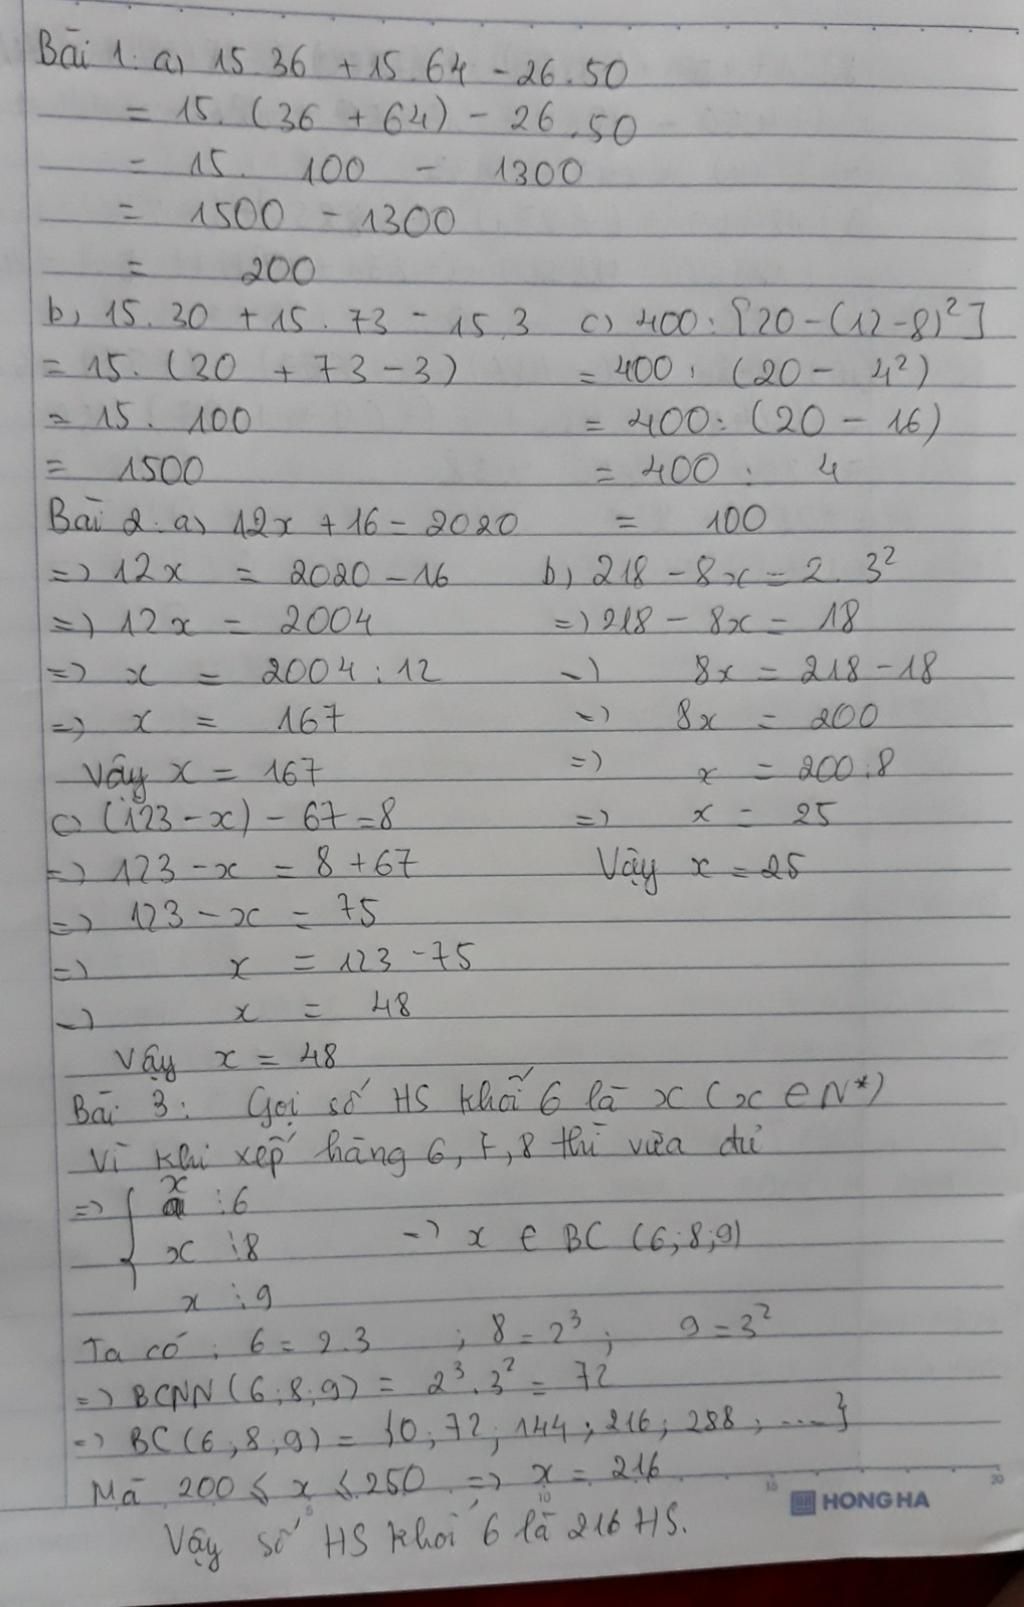 Bài 1: a) 15.36 + 15.64 - 26.50
= 15. (36 + 64) - 26.50
= 15. 100 - 1300
= 1500 - 1300
= 200
b) 15.30 + 15.73 - 15.3
= 15. (30 + 73 - 3)
= 15. 100
= 1500
c) 400 : [20 - (12 - 8)²]
= 400 : (20 - 4²)
= 400 : (20 - 16)
= 400 : 4
= 100
Bài 2: a) 12x + 16 = 2020
=> 12x = 2020 - 16
=> 12x = 2004
=> x = 2004 : 12
=> x = 167
Vậy x = 167
b) 218 - 8x = 2. 3²
=> 218 - 8x = 18
=> 8x = 218 - 18
=> 8x = 200
=> x = 200 : 8
=> x = 25
Vậy x = 25
c) (123 - x) - 67 = 8
=> 123 - x = 8 + 67
=> 123 - x = 75
=> x = 123 - 75
=> x = 48
Vậy x = 48
Bài 3: Gọi số HS khối 6 là x (x ∈ N*)
Vì khi xếp hàng 6, 7, 8 thì vừa đủ
=> { x ⋮ 6
x ⋮ 8 => x ∈ BC (6; 8; 9)
x ⋮ 9
Ta có : 6 = 2.3 ; 8 = 2³ ; 9 = 3²
=> BCNN (6; 8; 9) = 2³. 3² = 72
=> BC (6; 8; 9) = {0; 72; 144; 216; 288; ....}
Mà 200 ≤ x ≤ 250 => x = 216
Vậy số HS khối 6 là 216 HS.
5 10 15 20
HONG HA